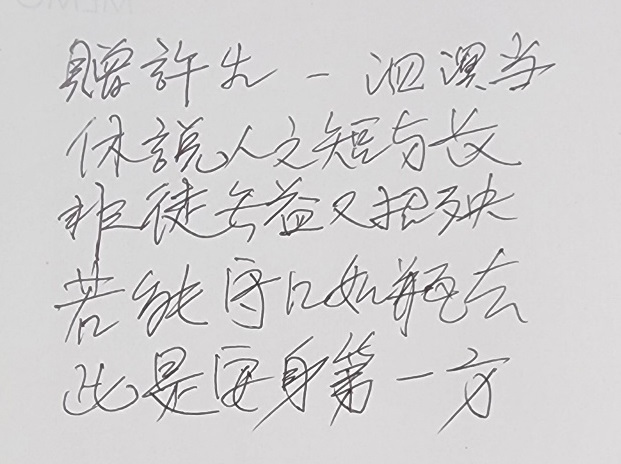 贈許生 - 泗濱当
休説人之短与长
非徒무益又招殃
若能守口如瓶去
此是安身第一方